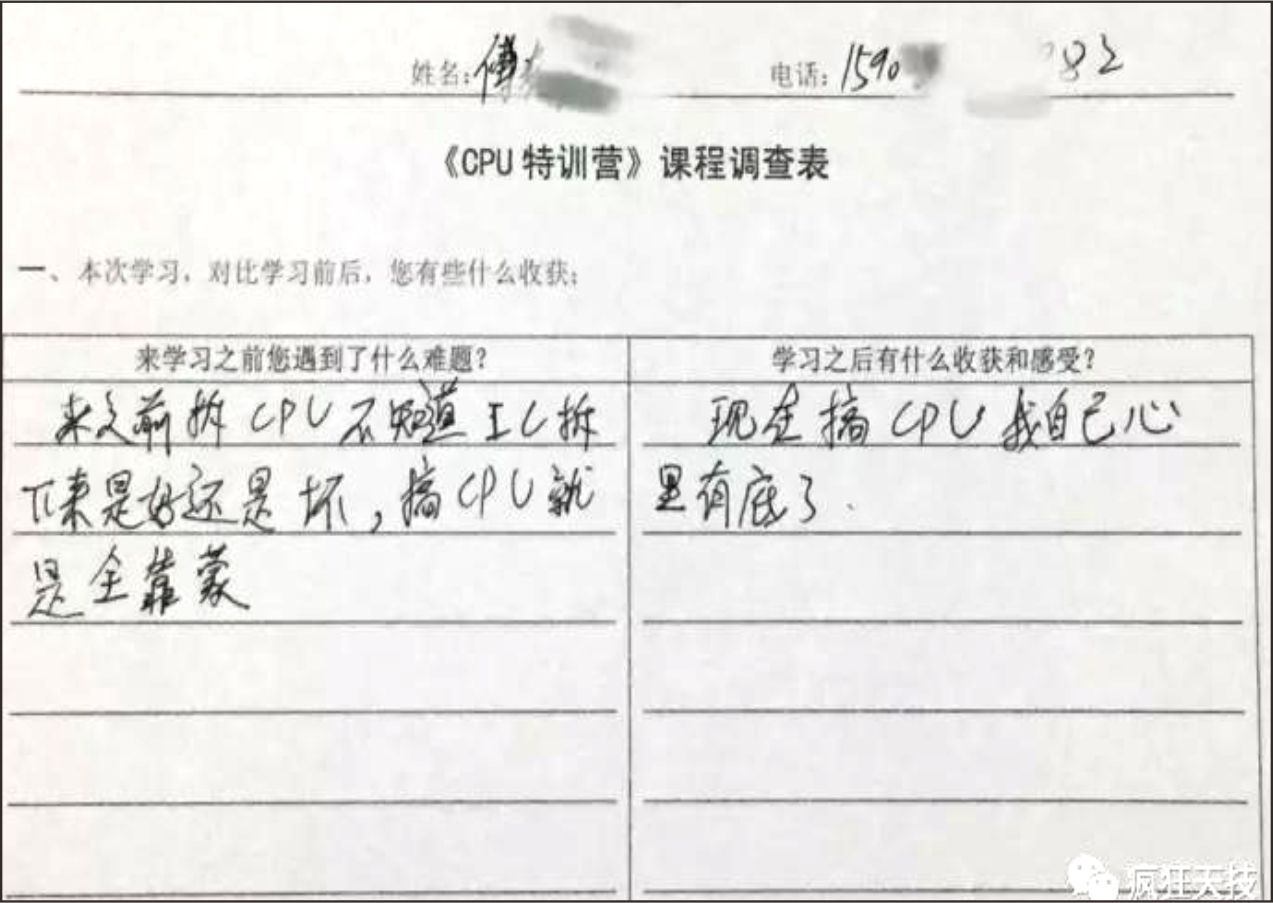 姓名:傅
电话:1590 82
《CPU特训营》课程调查表
一、本次学习，对比学习前后，您有些什么收获:
来学习之前您遇到了什么难题?
来之前拆CPU不知道
拆
下来是好还是坏，搞CPU就
是全靠蒙
学习之后有什么收获和感受?
现在搞CPU我自己心
里有底了.
疯狂天技